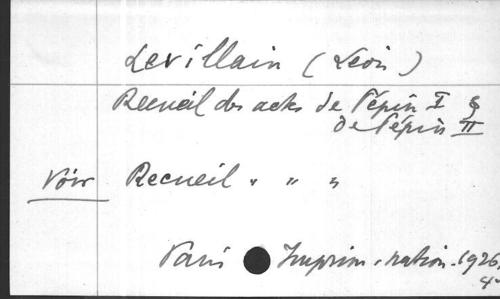 Levillain (Léon)
Recueil des actes de Pépin I &
de Pépin II
Voir Recueil " " "
Paris Imprim. nation. 1926.
4°